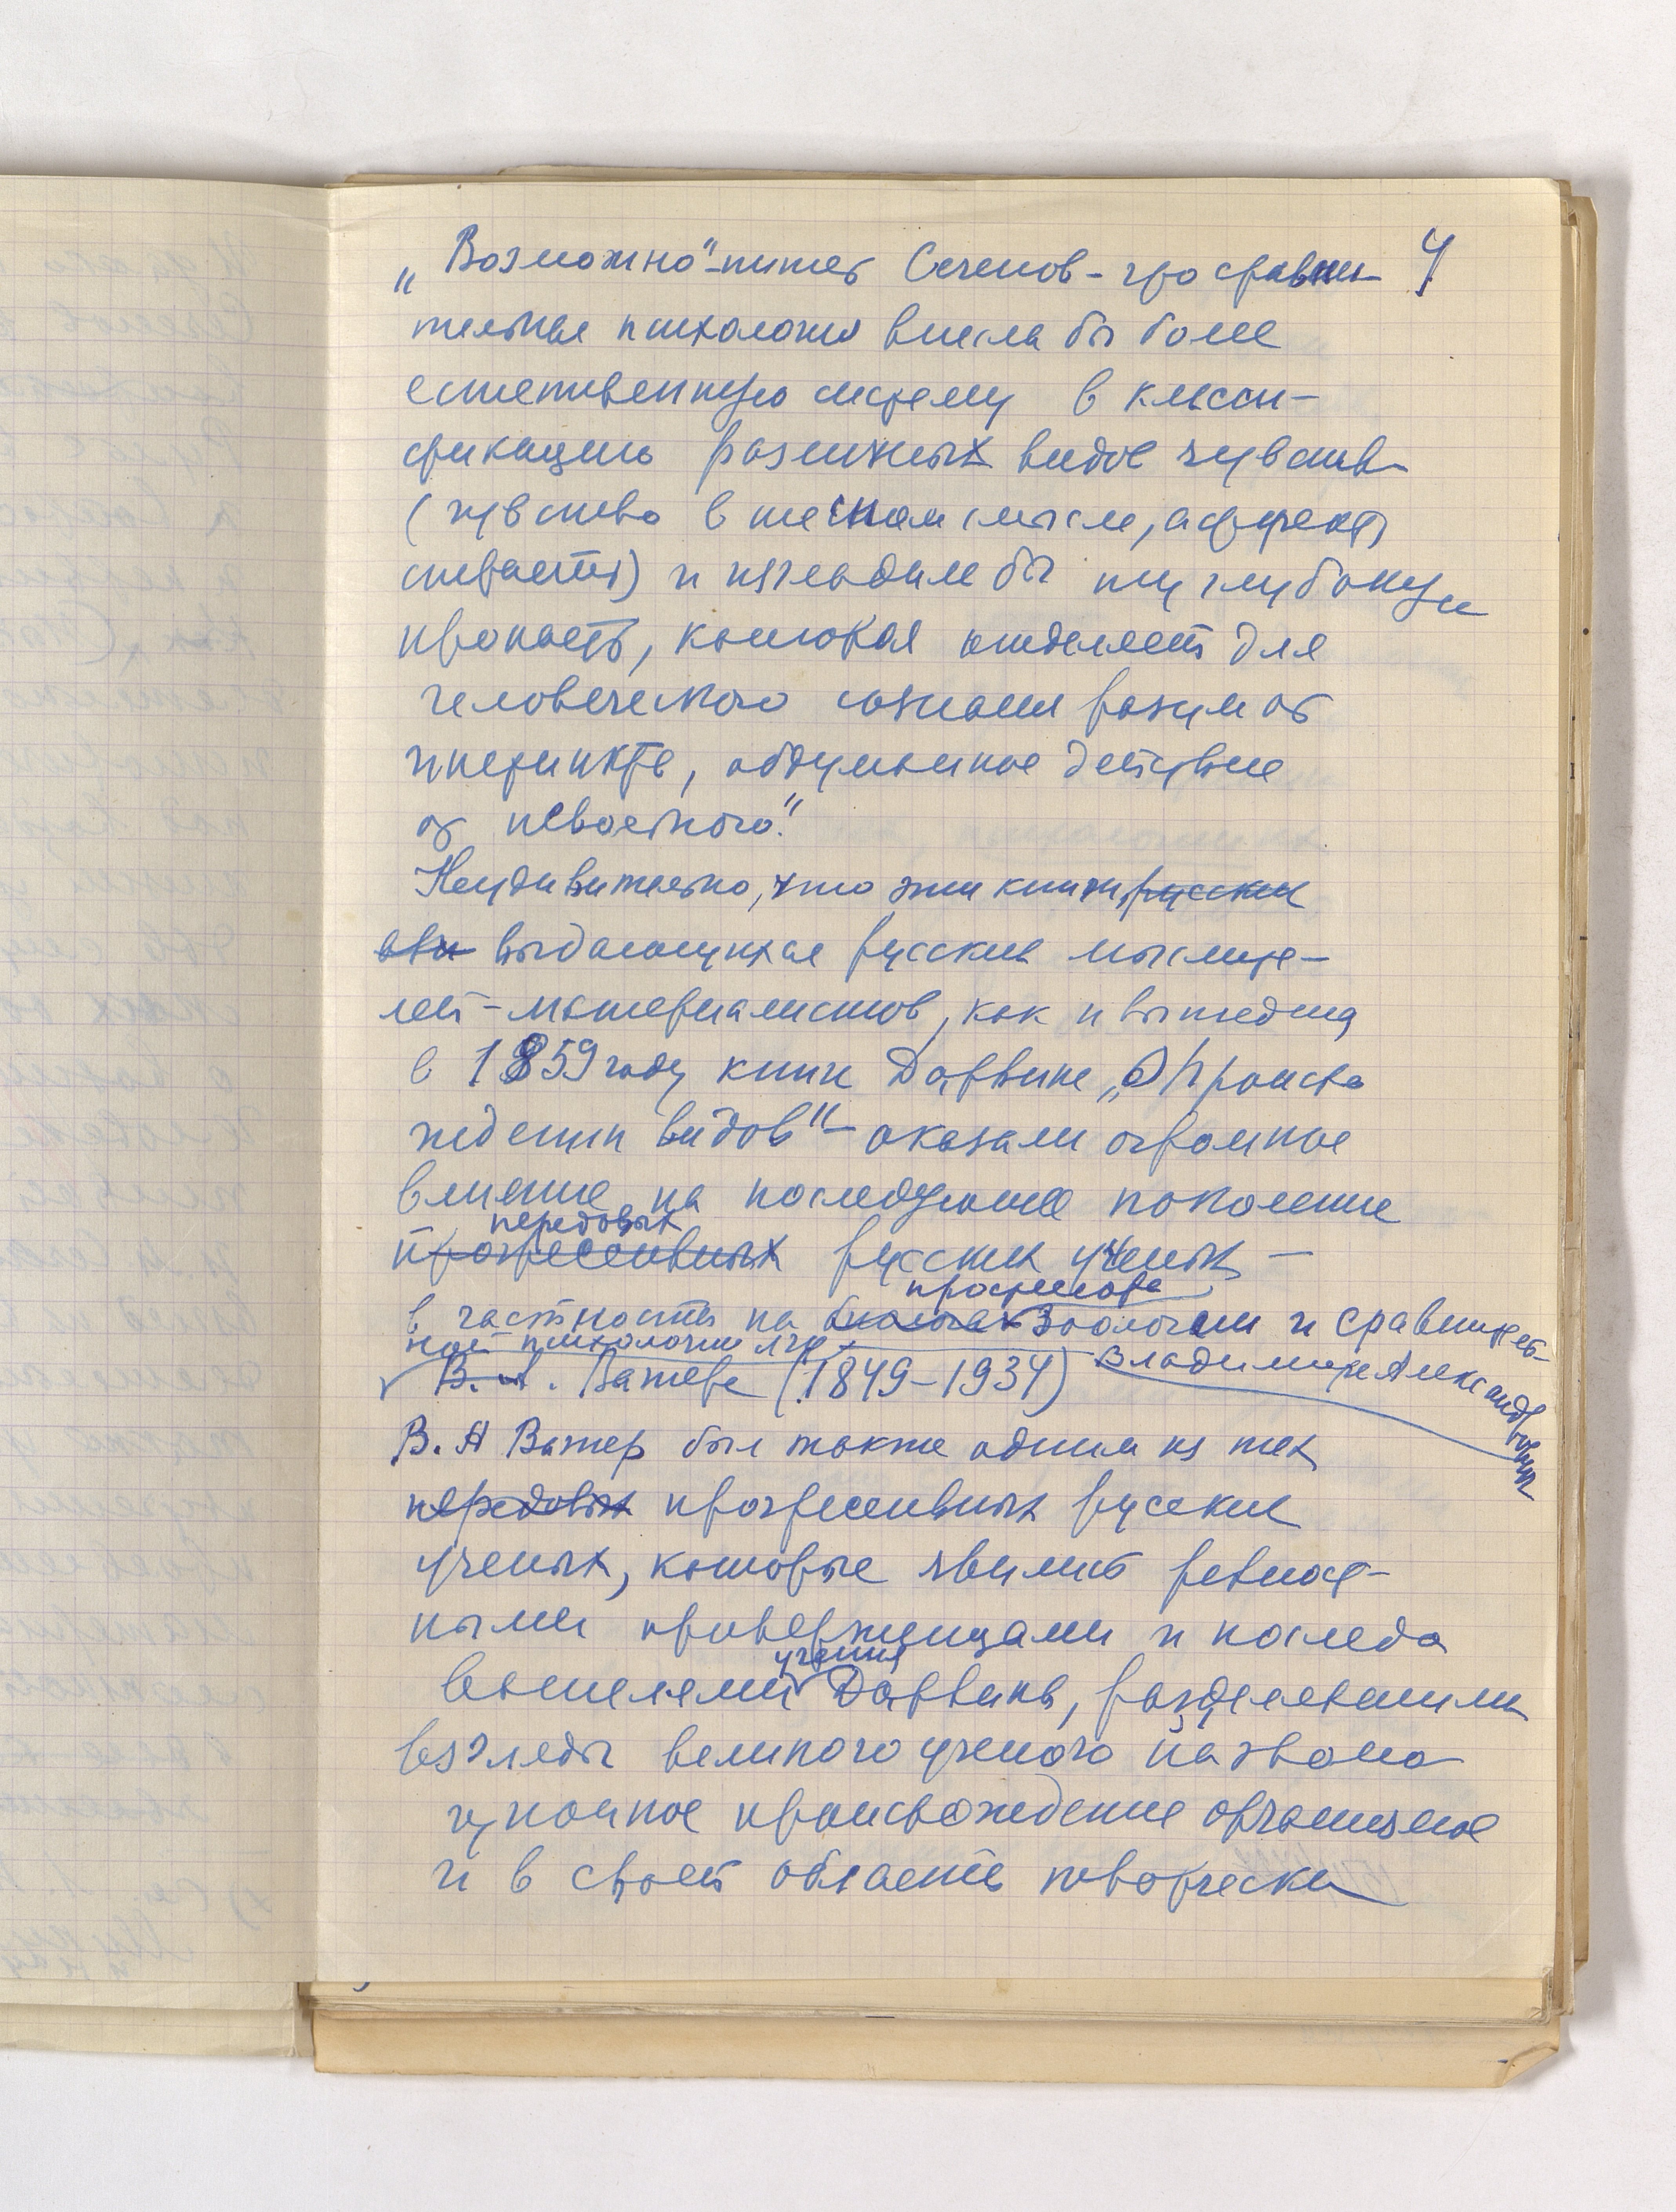 4
„Возможно"–пишет Сеченов – что сравни-
тельная психология внесла бы более
естественную систему в класси-
фикацию различных видов чувств
(чувство в тесном смысле, аффект,
страсть) и изгладила бы ту глубокую
пропасть, которая отделяет для
человеческого сознания разум от
инстинкта, обдуманное действие
от невольного."
Неудивительно, что эти книги, русских
выдающихся русских мыслите-
лей – материалистов, как и вышедшая
в 1859 году книга Дарвина „О происхо
ждении видов" – оказали огромное
влияние на последующее поколение
передовых
прогрессивных русских ученых –
профессора
в частности на биолога зоологии и сравнитель-
ной психологии МГУ
В. А. Вагнера (1849–1934) Владимира Александровича
В. А Вагнер был также одним из тех
передовых прогрессивных русских
ученых, которые явились ревност-
ными приверженцами и последо
учения
вателями Дарвина, разделявшими
взгляды великого ученого на эволю
ционное происхождение организмов
и в своей области творчески